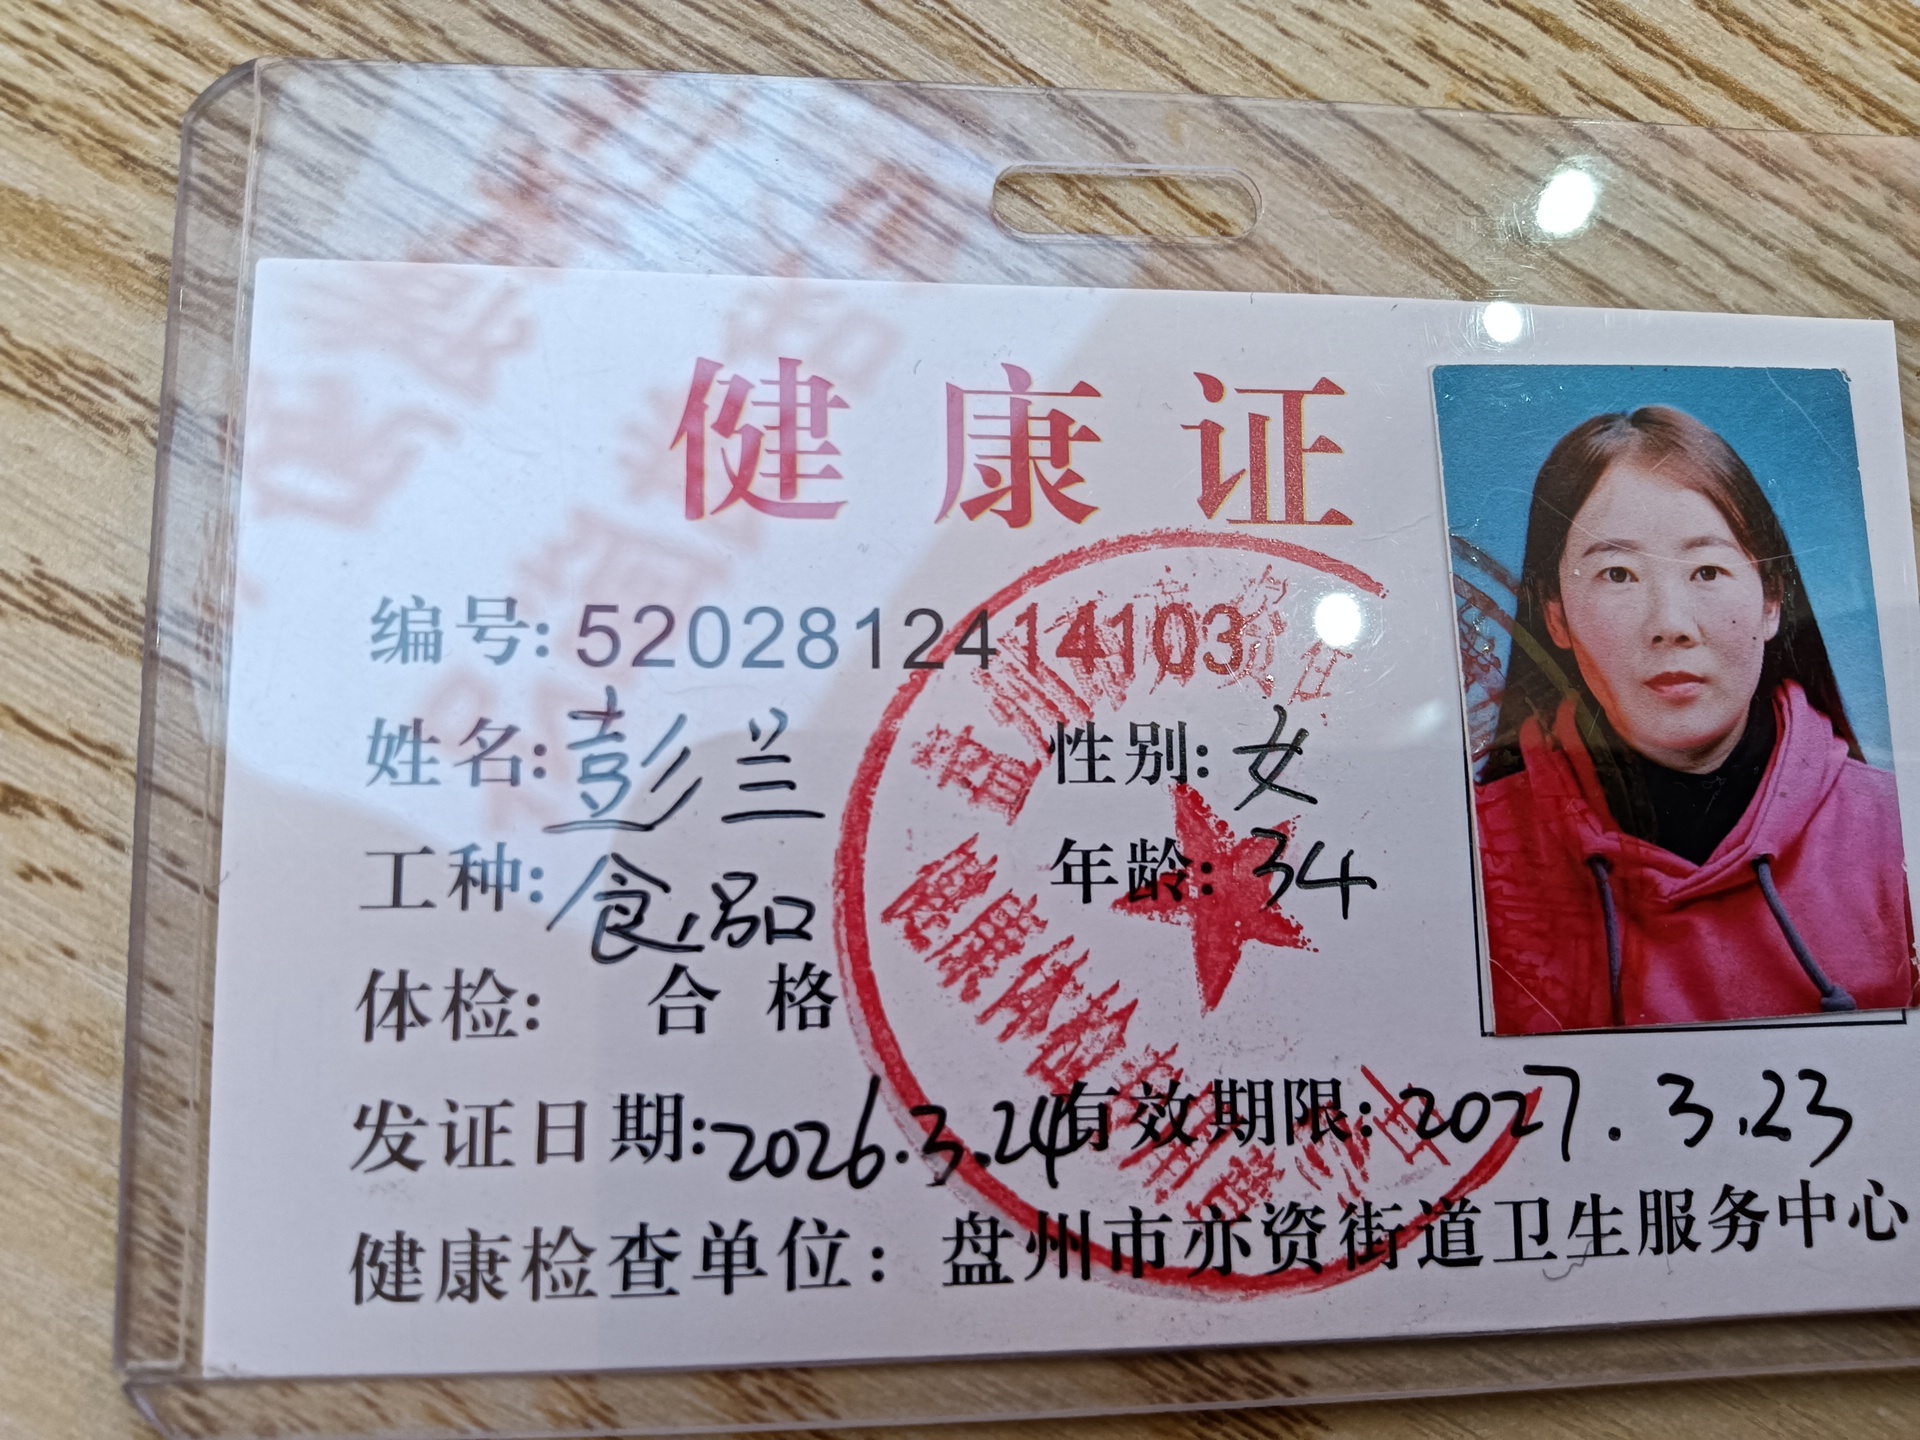 健康证
编号: 5202812414103
姓名: 彭兰 性别: 女
工种: 食品 年龄: 34
体检: 合格
发证日期: 2026.3.24 有效期限: 2027.3.23
健康检查单位: 盘州市亦资街道卫生服务中心